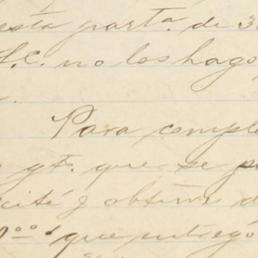 esta parta. de 3
S.C. no los hago
Para comple
gt. que se p
cité y obtuve d
que entregó